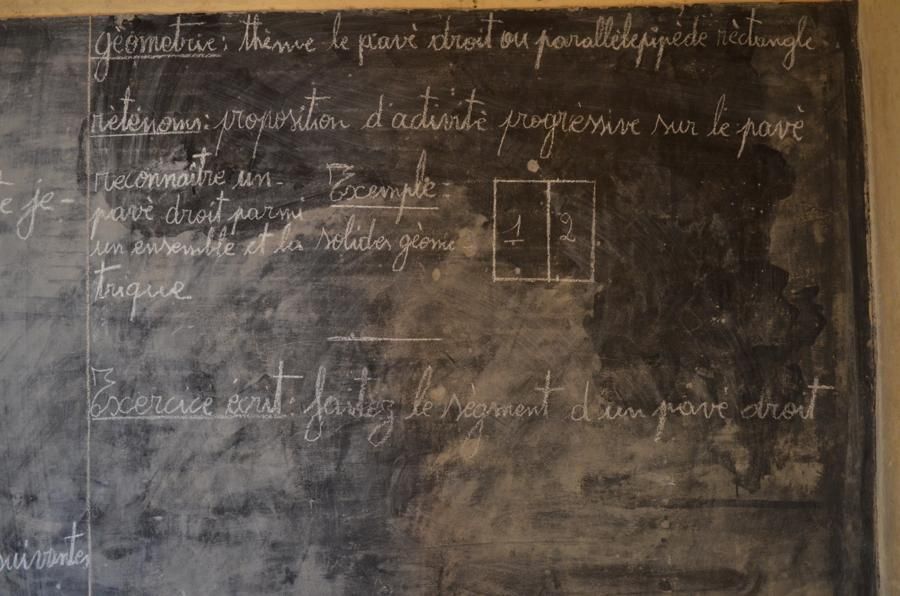 gèometrie: thème le pavè droit ou parallèlepipède rèctangle
rètènons: proposition d'activitè progrèssive sur le pavè
reconnaître un
Exemple
pavè droit parmi
un ensemble et les solides gèomè-
trique
1 2
Exercice écrit: faitez le sègment d'un pavé droit
je-
suivantes